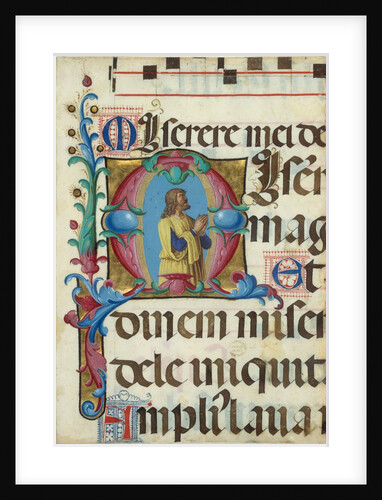 Miserere mei de
Miser
mag
et
dinem miser
dele iniquit
Ampliꝰ laua